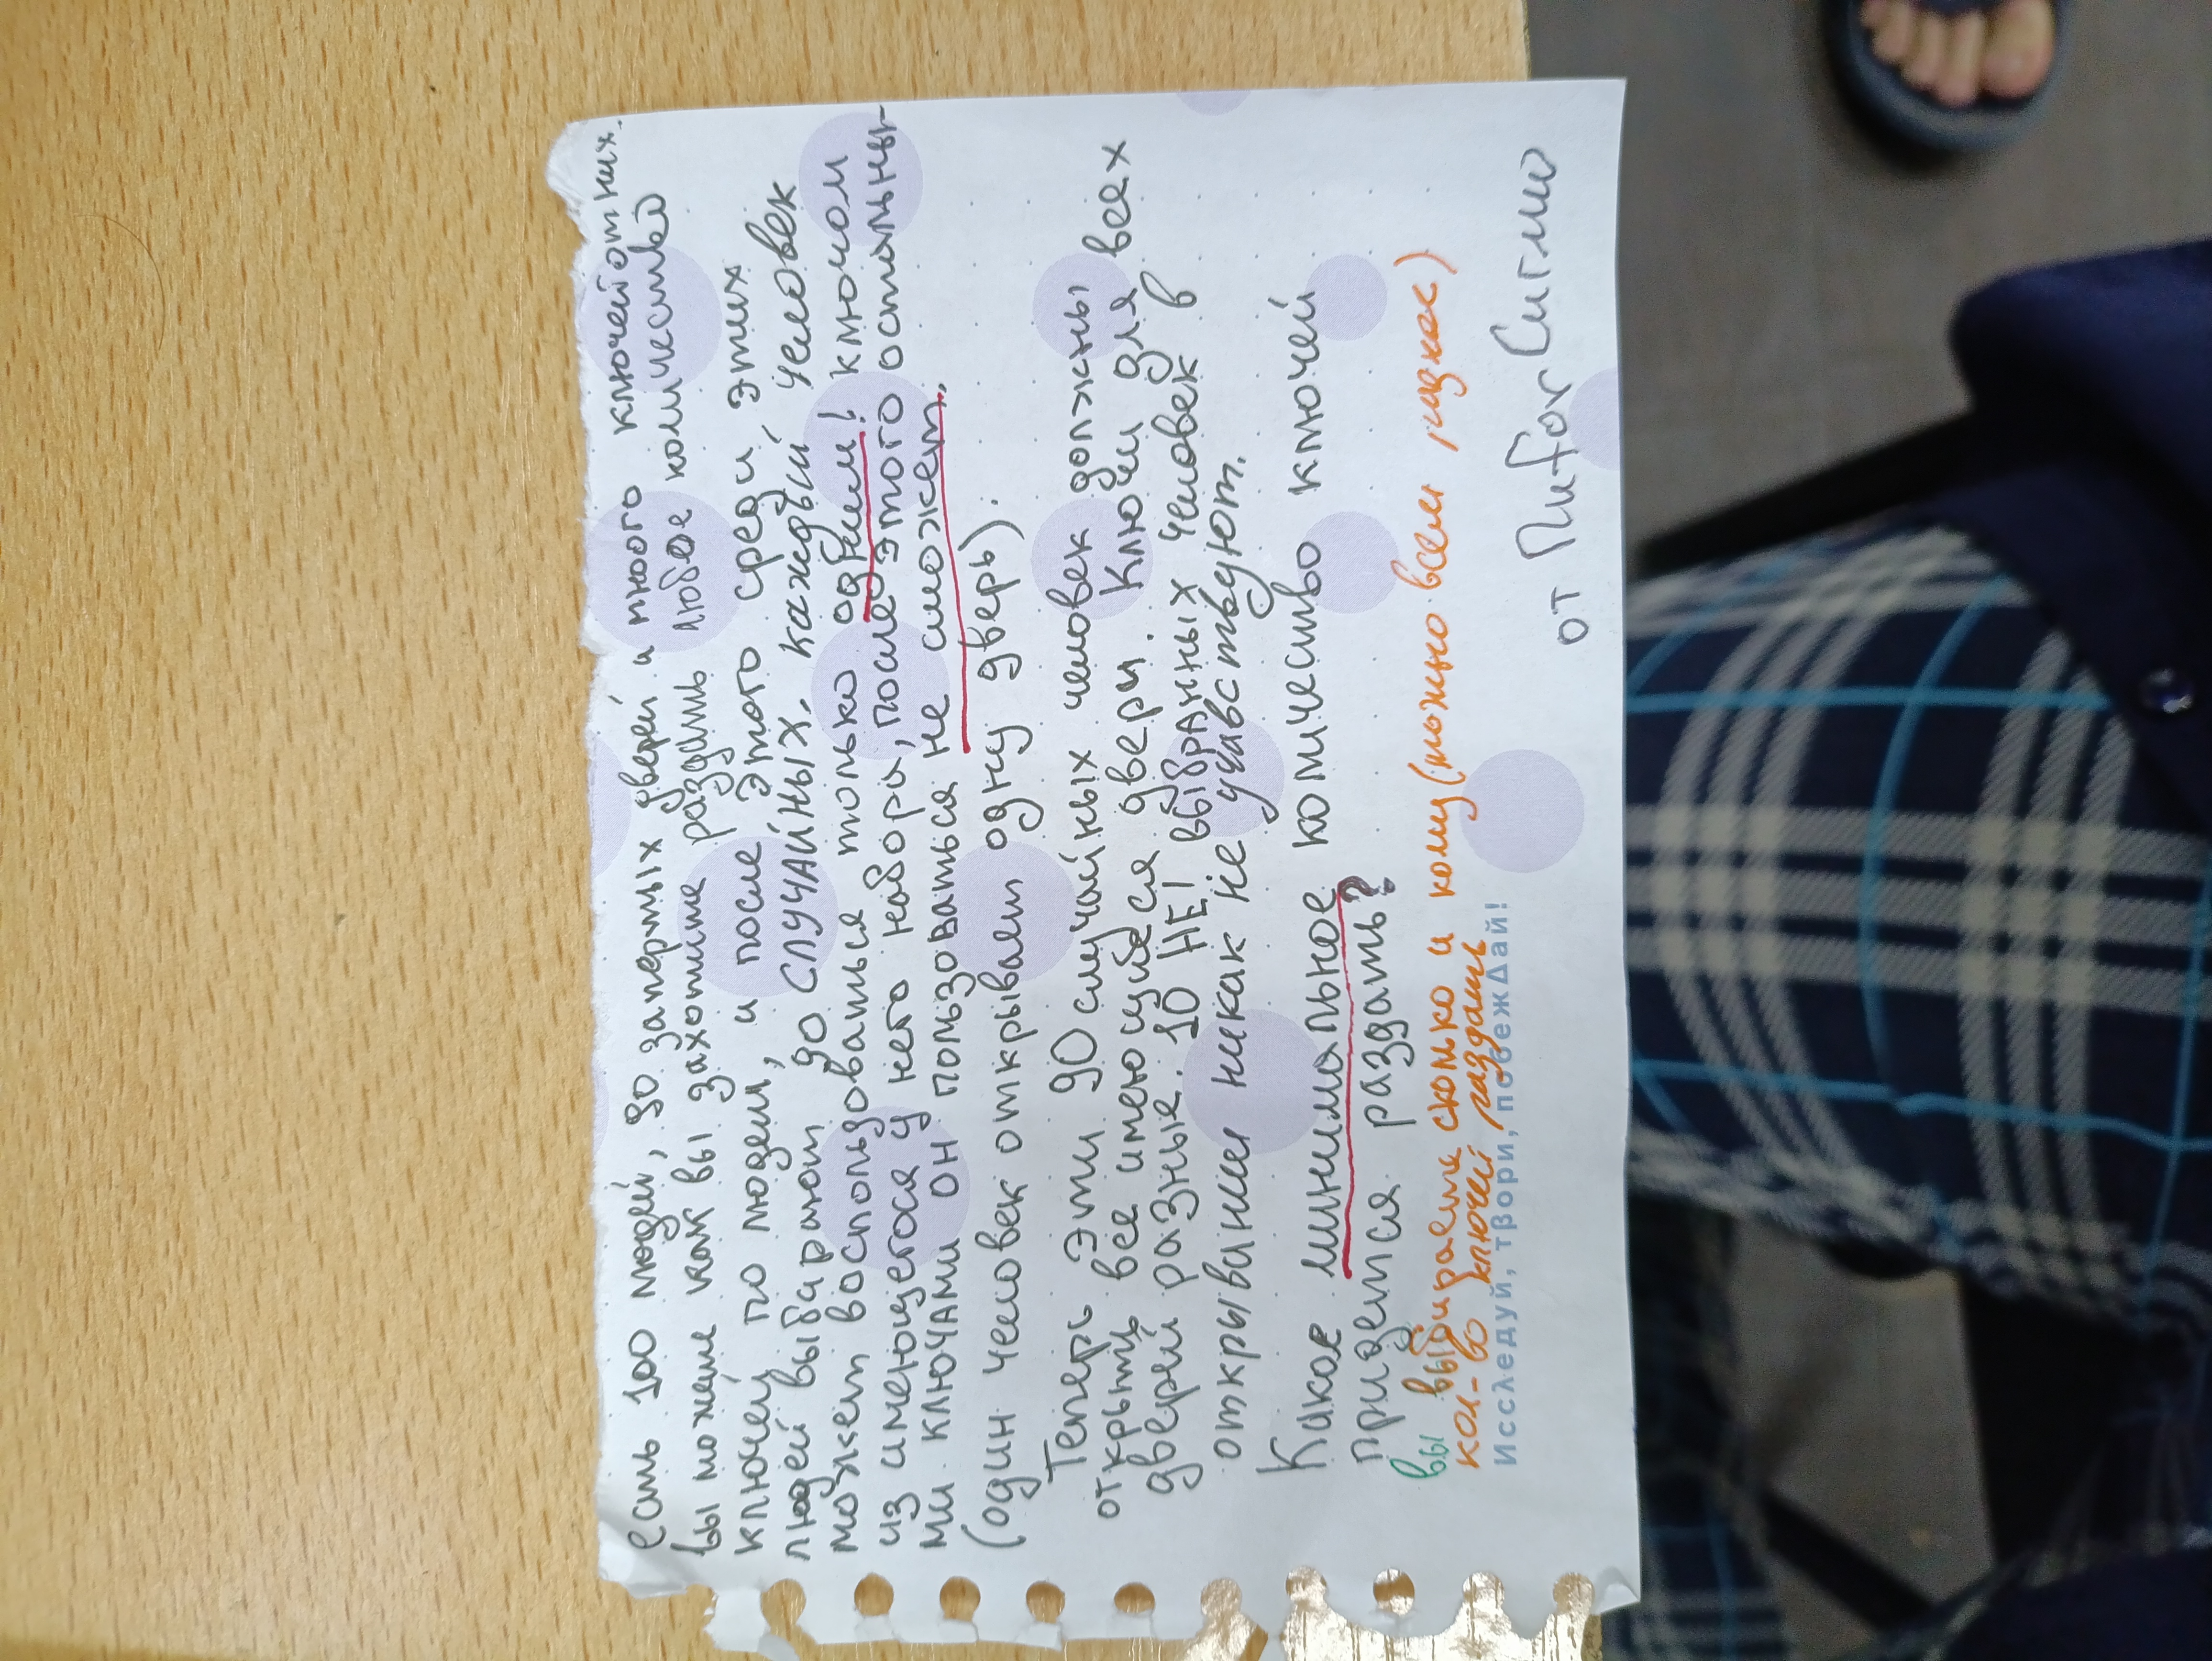 есть 100 людей, 90 запертых дверей и много ключей от них.
вы можете как вы захотите раздать любое количество
ключей по людям, и после этого среди этих
людей выбирают 90 СЛУЧАЙНЫХ. каждый человек
может воспользоваться только одним! ключом
из имеющегося у него набора, после этого остальны-
ми ключами он пользоваться не сможет.
(один человек открывает одну дверь).
Теперь эти 90 случайных человек должны
открыть все имеющиеся двери. Ключи для всех
дверей разные. 10 НЕ! выбранных человек в
открывании никак не учавствуют.
Какое минимальное количество ключей
придется раздать?
вы выбираете сколько и кому (можно всем разное)
кол-во ключей раздать
Исследуй, твори, побеждай!
от Пиfor Сигмы